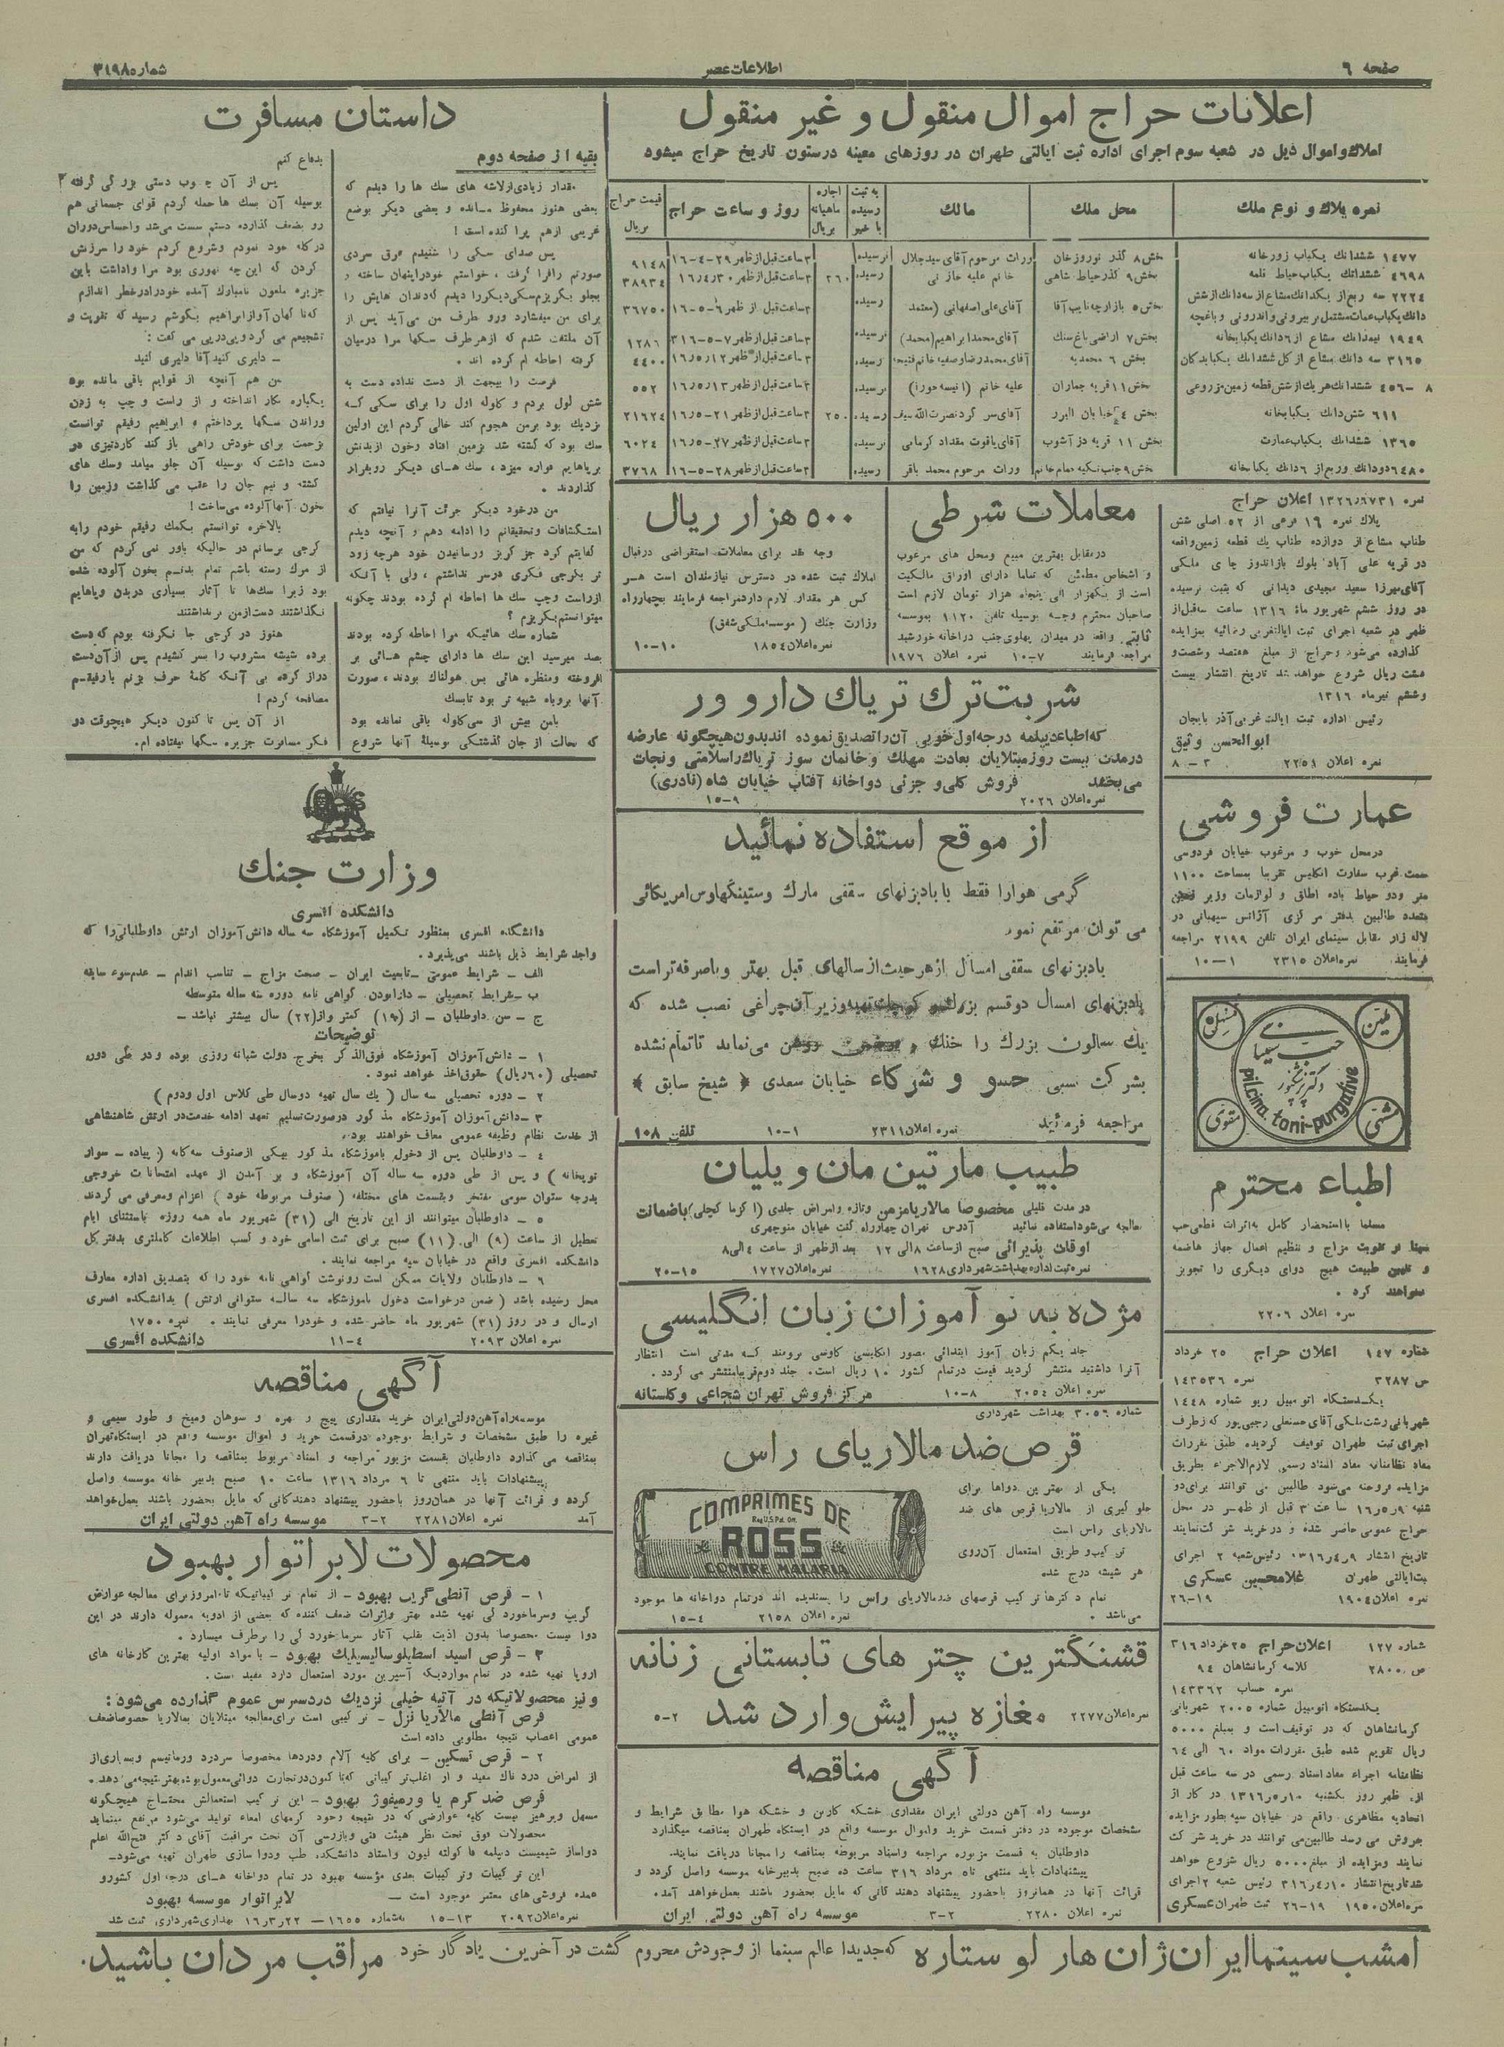 صفحه ۶
اطلاعات عصر
شماره ۳۱۹۸
اعلانات حراج اموال منقول و غیر منقول
املاك و اموال ذیل در شعبه سوم اجرای اداره ثبت ایالتی طهران در روزهای معینه درستون تاریخ حراج میشود
نمره پلاك و نوع ملك
محل ملك
مالك
به ثبت رسیده یا خیر
اجاره ماهیانه بریال
روز و ساعت حراج
قیمت حراج بریال
۱۴۷۷ ششدانك یكباب زورخانه بخش ۸ گذر نوروزخان وراث مرحوم آقای سیدجلال نرسیده ۳ ساعت قبل از ظهر ۲۹-۴-۱۶ ۹۱۴۸
۴۶۹۸ ششدانك یكباب حیاط قلمه بخش ۹ گذر حیاط شاهی رسیده ۲۶۰ ۳ ساعت قبل از ظهر ۱۶/۴/۳۰ ۳۸۹۳۴
۲۲۲۴ سه ربع از یكدانك مشاع از سه دانك از شش
دانك یكباب عمارت مشتمل بر بیرونی و اندرونی و باغچه
بخش ۵ بازارچه نایب آقا آقای علی اصفهانی (معتمد رسیده ۳ ساعت قبل از ظهر ۶-۵-۱۶ ۳۶۷۵۰
۱۹۴۹ نیمدانك مشاع از ۶ دانك یكبابخانه بخش ۷ اراضی باغ سنك آقای محمد ابراهیم (محمد) نرسیده ۳ ساعت قبل از ظهر ۷-۵-۳۱۶ ۱۲۸۶
۳۱۶۵ سه دانك مشاع از كل ششدانك یكبابدكان بخش ۶ محمدیه رسیده ۳ ساعت قبل از ظهر ۱۶/۵/۱۲ ۴۴۰۰
۸-۴۵۶ ششدانك هریك از شش قطعه زمین مزروعی بخش ۱۱ قریه جماران علیه خانم (انیسه حورا) نرسیده ۳ ساعت قبل از ظهر ۱۶/۵/۱۳ ۵۵۲
۶۱۱ شش دانك یكبابخانه بخش ۴ خیابان البرز آقای سرگرد نصرت الله سیف رسیده ۲۵۰ ۳ ساعت قبل از ظهر ۲۱-۱۶/۵ ۲۱۶۲۴
۱۳۶۵ ششدانك یكباب عمارت بخش ۱۱ قریه دزآشوب آقای یاقوت مقداد كرمانی نرسیده ۳ ساعت قبل از ظهر ۲۷-۱۶/۵ ۶۰۲۴
۶۴۸۰ دودانك و ربع از ۶ دانك یكبابخانه وراث مرحوم محمد باقر رسیده ۳ ساعت قبل از ظهر ۲۸-۵-۱۶ ۳۷۶۸
نمره ۱۳۲۶/۶۷۳۱ اعلان حراج
پلاك نمره ۱۹ فرعی از ۵۲ اصلی شش
طناب مشاع از دوازده طناب یك قطعه زمین واقعه
در قریه علی آباد بلوك بازاندوز چای ملكی
آقای میرزا سعید مجیدی دیدانی كه بثبت نرسیده
در روز ششم شهریور ماه ۱۳۱۶ ساعت سه قبل از
ظهر در شعبه اجرای ثبت ایالتغربی رضائیه بمزایده
گذارده میشود و حراج از مبلغ هفتصد و شصت و
هشت ریال شروع خواهد شد تاریخ انتشار بیست
وششم تیرماه ۱۳۱۶
رئیس اداره ثبت ایالت غربی آذربایجان
ابوالحسن وثیق
نمره اعلان ۲۲۵۱ ۳-۸
عمارت فروشی
در محل خوب و مرغوب خیابان فردوسی
سمت غرب سفارت انگلیس تقریبا بمساحت ۱۱۰۰
متر ودو حیاط باده اطاق و لوازمات وزیر زمین
متعدد طالبین بدفتر مركزی آژانس سپهبانی در
لاله زار مقابل سینمای ایران تلفن ۲۱۹۹ مراجعه
فرمایند. نمره اعلان ۲۳۱۵ ۱-۱۰
ملین
مسهل
مشهی
مقوی
حب سینمای
دكتر پرتو پور
pilcina toni-purgative
اطباء محترم
مسلما با استحضار كامل به اثرات قطعی حب
سینا در تقویت مزاج و تنظیم اعمال جهاز هاضمه
و تلیین طبیعت هیچ دوای دیگری را تجویز
نخواهند كرد.
نمره اعلان ۲۲۰۶
شماره ۱۴۷ اعلان حراج ۲۵ خرداد
ص ۳۲۸۷ نمره ۱۴۳۵۳۶
یكدستگاه اتومبیل ریو شماره ۱۴۴۸
شهربانی رشت ملكی آقای حسنعلی رجبی پور كه از طرف
اجرای ثبت طهران توقیف گردیده طبق مقررات
مفاد نظامنامه مفاد اسناد رسمی لازم الاجراء بطریق
مزایده فروخته می‌شود طالبین می توانند برای دو
شنبه ۱۶/۵/۹ ساعت ۳ قبل از ظهر در محل
حراج عمومی حاضر شده و در خرید شركت نمایند
تاریخ انتشار ۳۱۶/۴/۹ رئیس شعبه ۲ اجرای
ثبت ایالتی طهران غلامحسین عسكری
نمره اعلان ۱۹۰۴ ۱۹-۲۶
شماره ۱۲۷ اعلان حراج ۲۵ خرداد ۳۱۶
ص ۲۸۰۰ كلاسه كرمانشاهان ۹۴
نمره حساب ۱۴۳۳۶۲
یكدستگاه اتومبیل شماره ۲۰۰۵ شهربانی
كرمانشاهان كه در توقیف است و بمبلغ ۵۰۰۰
ریال تقویم شده طبق مقررات مواد ۶۰ الی ۶۴
نظامنامه اجراء مفاد اسناد رسمی در سه ساعت قبل
از ظهر روز یكشنبه ۱۳۱۶/۵/۱۰ در كاراژ
اتحادیه مظاهری واقع در خیابان سپه بطور مزایده
بفروش می رسد طالبین می توانند در خرید شركت
نمایند و مزایده از مبلغ ۵۰۰۰ ریال شروع خواهد
شد تاریخ انتشار ۳۱۶/۴/۱۰ رئیس شعبه ۲ اجرای
نمره اعلان ۱۹۵۰ ۱۹-۲۶ ثبت طهران عسكری
معاملات شرطی
درمقابل بهترین مبیع ومحل های مرغوب
و اشخاص مطمئن كه تماما دارای اوراق مالكیت
است از یكهزار الی پنجاه هزار تومان لازم است
صاحبان محترم وجه بوسیله تلفن ۱۱۲۰ بموسسه
ثابتی واقع در میدان پهلوی جنب دواخانه خورشید
مراجعه فرمایند ۷-۱۰ نمره اعلان ۱۹۷۶
۵۰۰ هزار ریال
وجه نقد برای معاملات استقراضی درقبال
املاك ثبت شده در دسترس نیازمندان است هر
كس هر مقدار لازم دارد مراجعه فرمایند بچهارراه
وزارت جنك (موسسه ملكی شفق)
نمره اعلان ۱۸۵۴ ۱۰-۱۰
شربت ترك تریاك دارو ور
كه اطباء دیپلمه درجه اول خوبی آن را تصدیق نموده اند بدون هیچگونه عارضه
درمدت بیست روز مبتلایان بعادت مهلك و خانمان سوز تریاك را سلامتی و نجات
می بخشد فروش كلی و جزئی دواخانه آفتاب خیابان شاه (نادری)
نمره اعلان ۲۰۲۶ ۹-۱۵
از موقع استفاده نمائید
گرمی هوا را فقط با بادبزنهای سقفی مارك وستینگهاوس امریكائی
می توان مرتفع نمود
بادبزنهای سقفی امسال از هر حیث از سالهای قبل بهتر و با صرفه تر است
بادبزنهای امسال دو قسم بزرك و كوچك تهیه و زیر آن چراغی نصب شده كه
یك سالون بزرك را خنك و روشن می نماید تا تمام نشده
بشركت نسبی حسو و شركاء خیابان سعدی (شیخ سابق)
مراجعه فرمائید نمره اعلان ۲۳۱۱ ۱-۱۰ تلفن ۱۰۸
طبیب مارتین مان و یلیان
در مدت قلیلی مخصوصا مالاریا مزمن وتازه وامراض جلدی (اكزما كچلی) باضمانت
معالجه می شود استفاده نمائید آدرس تهران چهارراه كنت خیابان منوچهری
اوقات پذیرائی صبح از ساعت ۸ الی ۱۲ بعد از ظهر از ساعت ۴ الی ۸
نمره ثبت اداره بهداشت شهرداری ۱۶۲۸ نمره اعلان ۱۷۲۷ ۱۵-۲۰
مژده به نو آموزان زبان انگلیسی
جلد یكم زبان آموز ابتدائی مصور انگلیسی كاوسی برومند كه مدتی است انتظار
آنرا داشتید منتشر گردید قیمت درتمام كشور ۱۰ ریال است. جلد دوم قریبا منتشر می گردد.
نمره اعلان ۲۰۵۴ ۸-۱۰ مركز فروش تهران شجاعی و گلستانه
شماره ۳۰۵۶ بهداشت شهرداری
قرص ضد مالاریای راس
یكی از بهترین دواها برای
جلوگیری از مالاریا قرص های ضد
مالاریای راس است
تركیب و طریق استعمال آن روی
هر شیشه درج شده
COMPRIMES DE
ROSS
CONTRE MALARIA
تمام دكترها تركیب قرصهای ضد مالاریای راس را پسندیده اند در تمام دواخانه ها موجود
می باشد. نمره اعلان ۲۱۵۸ ۴-۱۵
قشنگترین چترهای تابستانی زنانه
نمره اعلان ۲۲۷۷ مغازه پیرایش وارد شد ۲-۵
آگهی مناقصه
موسسه راه آهن دولتی ایران مقداری خشكه كاربن و خشكه هوا مطابق شرایط و
مشخصات موجوده در دفتر قسمت خرید و اموال موسسه واقع در ایستگاه طهران بمناقصه میگذارد
داوطلبان به قسمت مزبوره مراجعه واسناد مربوطه بمناقصه را مجانا دریافت نمایند.
پیشنهادات باید منتهی تا ۵ مرداد ۳۱۶ ساعت ده صبح بدبیرخانه موسسه واصل گردد و
قرائت آنها در همانروز باحضور پیشنهاد دهندگانی كه مایل بحضور باشند بعمل خواهد آمد.
نمره اعلان ۲۲۸۰ ۲-۳ موسسه راه آهن دولتی ایران
داستان مسافرت
بقیه از صفحه دوم
مقدار زیادی از لاشه های سك ها را دیدم كه
بعضی هنوز محفوظ مانده و بعضی دیگر بوضع
غریبی ازهم پراكنده است!
پس صدای سكی را شنیدم عرق سردی
صورتم رافرا گرفت، خواستم خود را پنهان ساخته و
بجلو بگریزم سكی دیگر را دیدم كه دندان هایش را
برای من میفشارد ورو طرف من می آید پس از
آن ملتفت شدم كه از هر طرف سكها مرا درمیان
گرفته احاطه ام كرده اند.
فرصت را بیجهت از دست نداده دست به
شش لول بردم و گلوله اول را برای سكی كه
نزدیك بود برمن هجوم كند خالی كردم این اولین
سك بود كه كشته شد بزمین افتاد وخون ازبدنش
برپاهایم فواره میزد، سك های دیگر روبفرار
گذاردند.
من درخود دیگر جرئت آنرا نیافتم كه
استكشافات وتحقیقاتم را ادامه دهم و آنچه دیدم
كفایتم كرد جز گریز ورسانیدن خود هرچه زود
تر بكرجی فكری درسر نداشتم، ولی با آنكه
ازراست وچپ سك ها احاطه ام كرده بودند چگونه
میتوانستم بگریزم؟
شماره سك هائیكه مرا احاطه كرده بودند
بصد میرسید این سك ها دارای چشم هائی بر
افروخته ومنظره هائی بس هولناك بودند، صورت
آنها بروباه شبیه تر بود تابسك
بامن بیش از سی گلوله باقی نمانده بود
كه حالت از جان گذشتگی بوسیلهٔ آنها شروع
بدفاع كنم
پس از آن چوب دستی بزرگی گرفته
بوسیله آن بسك ها حمله كردم قوای جسمانی هم
رو بضعف گذارده دستم سست می‌شد واحساس دوران
دركله خود نمودم وشروع كردم خود را سرزنش
كردن كه این چه تهوری بود مرا واداشت باین
جزیره ملعون نامبارك آمده خود را درخطر اندازم
كه ناگهان آواز ابراهیم بگوشم رسید كه تقویت و
تشجیعم می كرد و پی در پی می گفت:
- دلیری كنید آقا دلیری كنید
من هم آنچه از قوایم باقی مانده بود
یكباره بكار انداخته و از راست و چپ به زدن
وراندن سكها پرداختم، ابراهیم رفیقم توانست
بزحمت برای خودش راهی باز كند كارد تیزی در
دست داشت كه بوسیله آن جلو میامد وسك های
كشته و نیم جان را عقب می گذاشت وزمین را
بخون آنها آلوده می ساخت!
بالاخره توانستم بكمك رفیقم خودم رابه
كرجی برسانم در حالیكه باور نمی كردم كه من
از مرك رسته باشم تمام بدنم بخون آلوده شده
بود زیرا سك‌ها تا آثار بسیاری دربدن وپاهایم
نگذاشتند دست از من برنداشتند
هنوز در كرجی جا نگرفته بودم كه دست
برده شیشه مشروب را بسر كشیدم پس از آن دست
دراز كرده بی آنكه كلمهٔ حرف بزنم با رفیقم
مصافحه كردم!
از آن پس تا كنون دیگر هیچوقت در
فكر مسافرت جزیره سكها نیفتاده ام.
وزارت جنك
دانشكده افسری
دانشكده افسری بمنظور تكمیل آموزشگاه سه ساله دانش آموزان ارتش داوطلبانی را كه
واجد شرایط ذیل باشند می‌پذیرد.
الف - شرایط عمومی - تابعیت ایران - صحت مزاج - تناسب اندام - عدم سوء سابقه
ب - شرایط تحصیلی - دارا بودن گواهی نامه دوره سه ساله متوسطه
ج - سن داوطلبان - از (۱۹) كمتر و از (۲۲) سال بیشتر نباشد -
توضیحات
۱ - دانش آموزان آموزشگاه فوق الذكر بخرج دولت شبانه روزی بوده و در طی دوره
تحصیلی (۶۰ ریال) حقوق اخذ خواهد نمود.
۲ - دوره تحصیلی سه سال (یك سال تهیه دوسال طی كلاس اول ودوم)
۳ - دانش آموزان آموزشگاه مذكور درصورت تسلیم تعهد ادامه خدمت در ارتش شاهنشاهی
از خدمت نظام وظیفه عمومی معاف خواهند بود.
۴ - داوطلبان پس از دخول بآموزشگاه مذكور بیكی از صنوف سه گانه (پیاده - سوار
توپخانه) و پس از طی دوره سه ساله آن آموزشگاه و بر آمدن از عهده امتحانات خروجی
بدرجه ستوان سومی مفتخر وبقسمت های مختلفه (صنوف مربوطه خود) اعزام ومعرفی می گردند
۵ - داوطلبان میتوانند از این تاریخ الی (۳۱) شهریور ماه همه روزه باستثنای ایام
تعطیل از ساعت (۹) الی (۱۱) صبح برای ثبت اسامی خود و كسب اطلاعات كاملتری بدفتر كل
دانشكده افسری واقع در خیابان سپه مراجعه نمایند.
۶ - داوطلبان ولایات ممكن است رونوشت گواهی نامه خود را كه بتصدیق اداره معارف
محل رسیده باشد (ضمن درخواست دخول بآموزشگاه سه ساله ستوانی ارتش) بدانشكده افسری
ارسال و در روز (۳۱) شهریور ماه حاضر شده و خود را معرفی نمایند. نمره ۱۷۵۰
نمره اعلان ۲۰۹۳ ۴-۱۱ دانشكده افسری
آگهی مناقصه
موسسه راه آهن دولتی ایران خرید مقداری پیچ و مهره و سوهان ومیخ و طور سیمی و
غیره را طبق مشخصات و شرایط موجوده در قسمت خرید و اموال موسسه واقع در ایستگاه تهران
بمناقصه می گذارد داوطلبان بقسمت مزبور مراجعه و اسناد مربوط بمناقصه را مجانا دریافت دارند
پیشنهادات باید منتهی تا ۶ مرداد ۱۳۱۶ ساعت ۱۰ صبح بدبیر خانه موسسه واصل
گردد و قرائت آنها در همان روز باحضور پیشنهاد دهندگانی كه مایل بحضور باشند بعمل خواهد
آمد نمره اعلان ۲۲۸۱ ۲-۳ موسسه راه آهن دولتی ایران
محصولات لابراتوار بهبود
۱ - قرص آنطی گریپ بهبود - از تمام تركیباتیكه تا امروز برای معالجه عوارض
گریپ وسرماخوردگی تهیه شده بهتر واثرات ضعف كننده كه بعضی از ادویه معموله دارند در این
دوا نیست مخصوصا بدون اذیت بقلب آثار سرماخوردگی را برطرف میسازد.
۲ - قرص اسید اسطیلوسالیسیلیك بهبود - با مواد اولیه بهترین كارخانه های
اروپا تهیه شده در تمام مواردیكه آسپرین مورد استعمال دارد مفید است.
و نیز محصولاتیكه در آتیه خیلی نزدیك دردسترس عموم گذارده می شود:
قرص آنطی مالاریا قزل - تركیبی است برای معالجه مبتلایان بمالاریا خصوصا ضعف
عمومی اعصاب نتیجه مطلوبی داده است
۲ - قرص تسكین - برای كلیه آلام ودردها مخصوصا سردرد ورماتیسم وبسیاری از
امراض دردناك مفید و از اغلب تركیباتی كه تا كنون در تجارت دوائی معمول بوده بهتر نتیجه می دهد.
قرص ضد كرم یا ورمیفوژ بهبود - این تركیب استعمالش محتاج هیچگونه
مسهل وپرهیز نیست كلیه عوارضی كه در نتیجه وجود كرمهای امعاء تولید می‌شود مرتفع مینماید
محصولات فوق تحت نظر هیئت فنی وبازرسی آن تحت مراقبت آقای دكتر فتح الله اعلم
دواساز شیمیست دیپلمه فاكولته لیون واستاد دانشكده طب ودوا سازی طهران تهیه می‌شود-
این تركیبات وتركیبات بعدی مؤسسه بهبود در تمام دواخانه های درجه اول كشور و
عمده فروشی های معتبر موجود است - لابراتوار موسسه بهبود
نمره اعلان ۲۰۹۲ ۱۳-۱۵ به شماره ۱۶۵۵ - ۱۶/۳/۲۲ بهداری شهرداری ثبت شد
امشب سینما ایران ژان هارلو ستاره كه جدیدا عالم سینما از وجودش محروم گشت در آخرین یادگار خود مراقب مردان باشید.